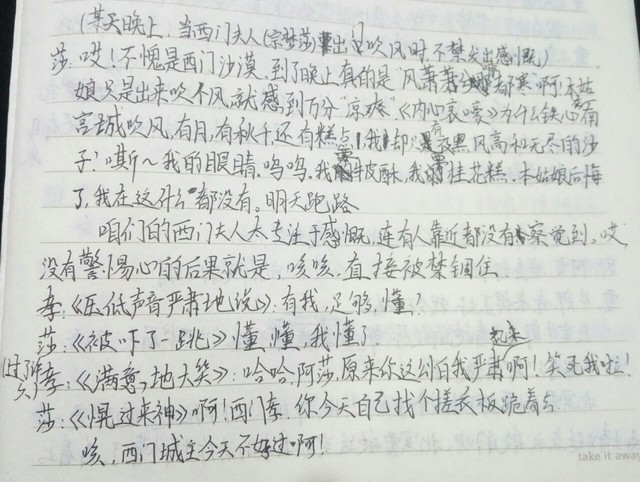 (某天晚上,当西门夫人(宗梦莎)出门吹风时,不禁发出感慨)
莎:哎!不愧是西门沙漠,到了晚上真的是"风萧萧都寒啊!本姑
娘只是出来吹个风就感到万分"凉爽"《内心哀嚎》为什么铁心南
宫城吹风,有月,有秋千,还有糕点!我却只有夜黑风高和无尽的沙
子!嘶~我的眼睛,呜呜,我要牛皮酥,我要桂花糕,本姑娘后悔
了,我在这什么都没有。明天跑路
咱们的西门夫人太专注于感慨,连有人靠近都没有察觉到。哎
没有警惕心的后果就是,咳咳,直接被禁锢住
李:《压低声音严肃地说》:有我,足够,懂?
莎:《被吓了一跳》懂,懂,我懂!
(过了许久)李:《满意地大笑》:哈哈,阿莎,原来你这么怕我严肃起来啊!笑死我啦!
莎:《慌过来神》啊!西门李,你今天自己找个搓衣板跪着去
咳,西门城主今天不好过啊!
take it away